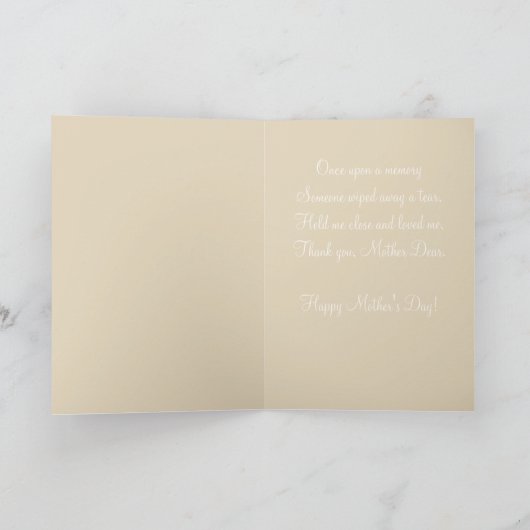 Once upon a memory
Someone wiped away a tear,
Held me close and loved me,
Thank you, Mother Dear.
Happy Mother's Day!